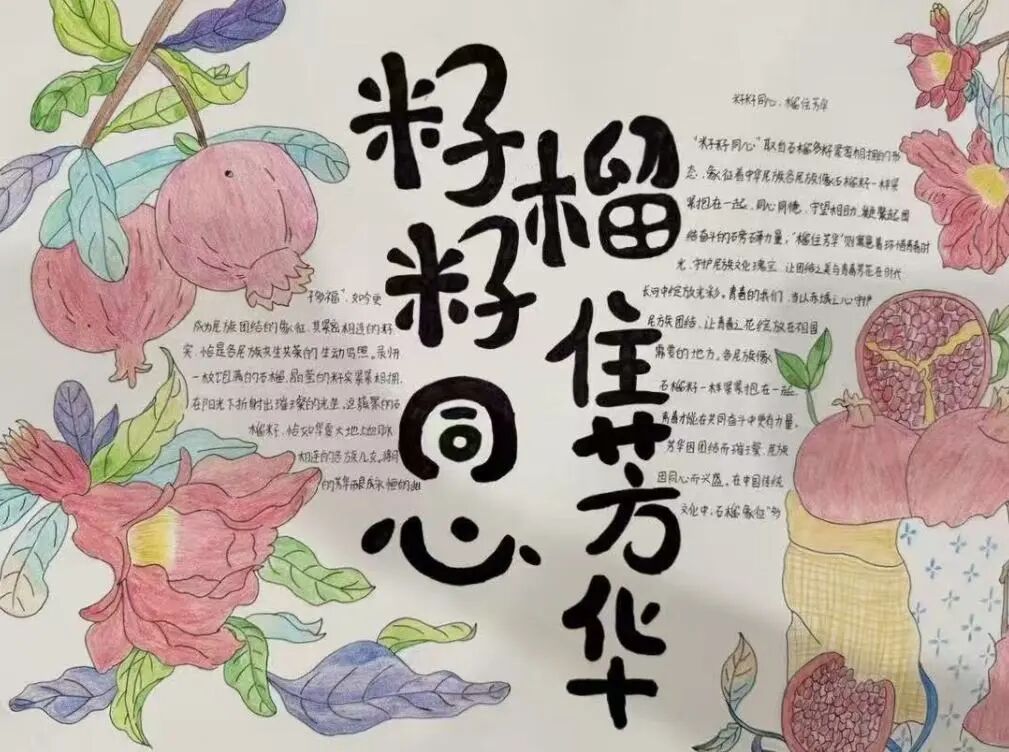 籽籽同心
榴住芳华
籽籽同心，榴住芳华
“籽籽同心”取自石榴多籽紧密相拥的形
态，象征着中华民族各民族像石榴籽一样紧
紧抱在一起，同心同德、守望相助，凝聚起团
结奋斗的磅礴力量，“榴住芳华”则寓意着珍惜青春时
光、守护民族文化瑰宝，让团结之美与青春芳华在时代
长河中绽放光彩。青春的我们，当以赤诚之心守护
民族团结，让青春之花绽放在祖国
需要的地方。各民族像
石榴籽一样紧紧抱在一起
青春才能在共同奋斗中更有力量。
芳华因团结而璀璨，民族
因同心而兴盛。在中国传统
文化中，石榴象征“多
子多福”，如今更
成为民族团结的象征，其紧密相连的籽
实，恰是各民族共生共荣的生动写照。亲师
一枚饱满的石榴，晶莹的籽实紧紧相拥，
在阳光下折射出璀璨的光望，这簇聚的石
榴籽，恰如华夏大地上血脉
相连的各族儿女，将
的芳华酿成永恒的